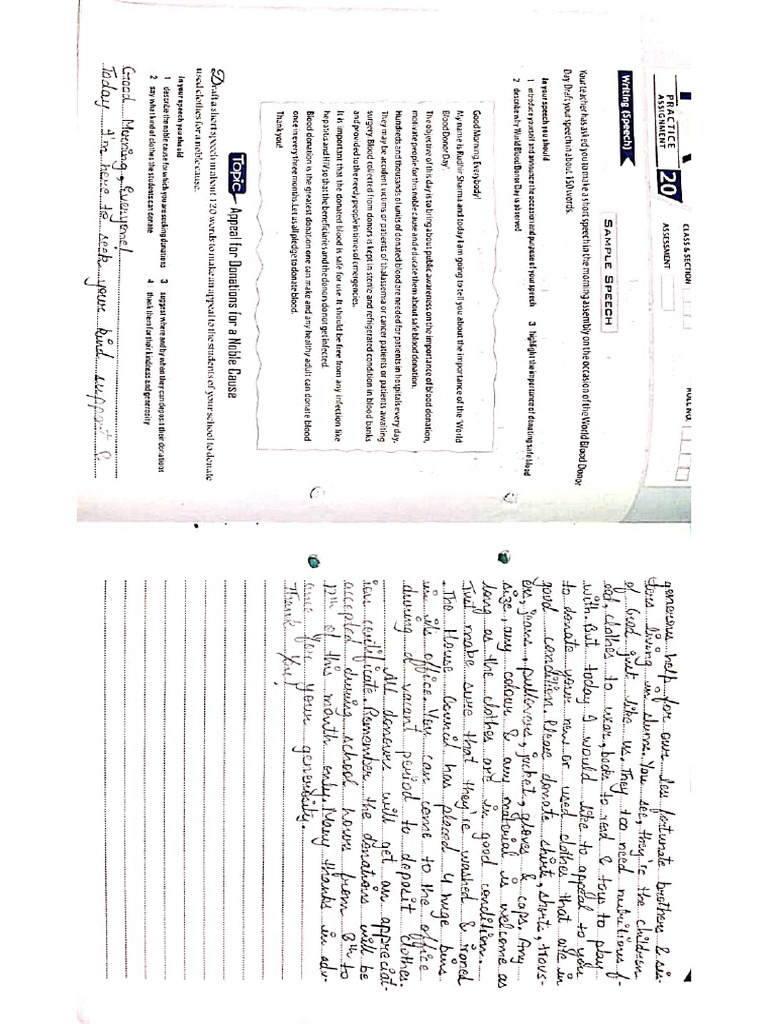 PRACTICE
ASSIGNMENT
20
CLASS & SECTION
ROLL NO.
ASSESSMENT
Writing (Speech)
SAMPLE SPEECH
Your teacher has asked you to make a short speech in the morning assembly on the occasion of the World Blood Donor
Day. Draft your speech in about 150 words.
In your speech you should
1 introduce yourself and announce the occasion and purpose of your speech
2 describe why World Blood Donor Day is observed
3 highlight the importance of donating safe blood
Good Morning Everybody!
My name is Rudhir Sharma and today I am going to tell you about the importance of the 'World
Blood Donor Day'.
The objective of this day is to bring about public awareness on the importance of blood donation,
motivate people for this noble cause and educate them about safe blood donation.
Hundreds and thousands of units of donated blood are needed for patients in hospitals every day.
They may be accident victims or patients of thalassemia or cancer patients or patients awaiting
surgery. Blood collected from donors is kept in sterile and refrigerated condition in blood banks
and provided to the needy people in times of emergencies.
It is important that the donated blood is safe for use. It should be free from any infection like
hepatitis and HIV, so that the beneficiaries and the donors do not get infected.
Blood donation is the greatest donation one can make and any healthy adult can donate blood
once in every three months. Let us all pledge to donate blood.
Thank you!
Topic Appeal for Donations for a Noble Cause
Draft a short speech in about 120 words to make an appeal to the students of your school to donate
used clothes for a noble cause.
In your speech you should
1 describe the noble cause for which you are seeking donations
2 say what kind of clothes the students can donate
3 suggest where and by when they can deposit their donations
4 thank them for their kindness and generosity
Good Morning, everyone!
Today I'm here to seek your kind support &
generous help for our less fortunate brothers & sis-
ters living in slums. You see, they're the children
of God just like us. They too need nutritious f-
ood, clothes to wear, books to read & toys to play
with. But today I would like to appeal to you
to donate your new or used clothes that are in
good condition. Please donate shirt, shorts, trous-
ers, jeans, pullovers, jacket, gloves & caps. Any
size, any colour & any material is welcome as
long as the clothes are in good condition.
Just make sure that they're washed & ironed
. The House Council has placed 4 huge bins
in its office. You can come to the office
during a vacant period to deposit clothes.
All donors will get an appreciat-
ion certificate. Remember the donations will be
accepted during school hours from 8th to
12th of this month only. Many thanks in adv-
ance for your generosity.
Thank You!